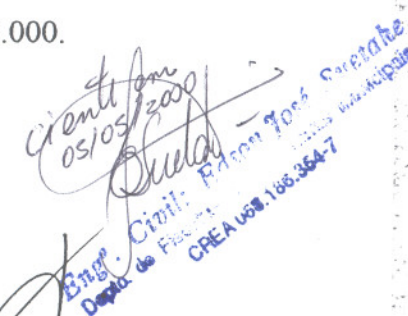 .000.
ciente em
05/05/2000
Engº. Civil: Edson José
Depto. de
CREA 068.186.354-7